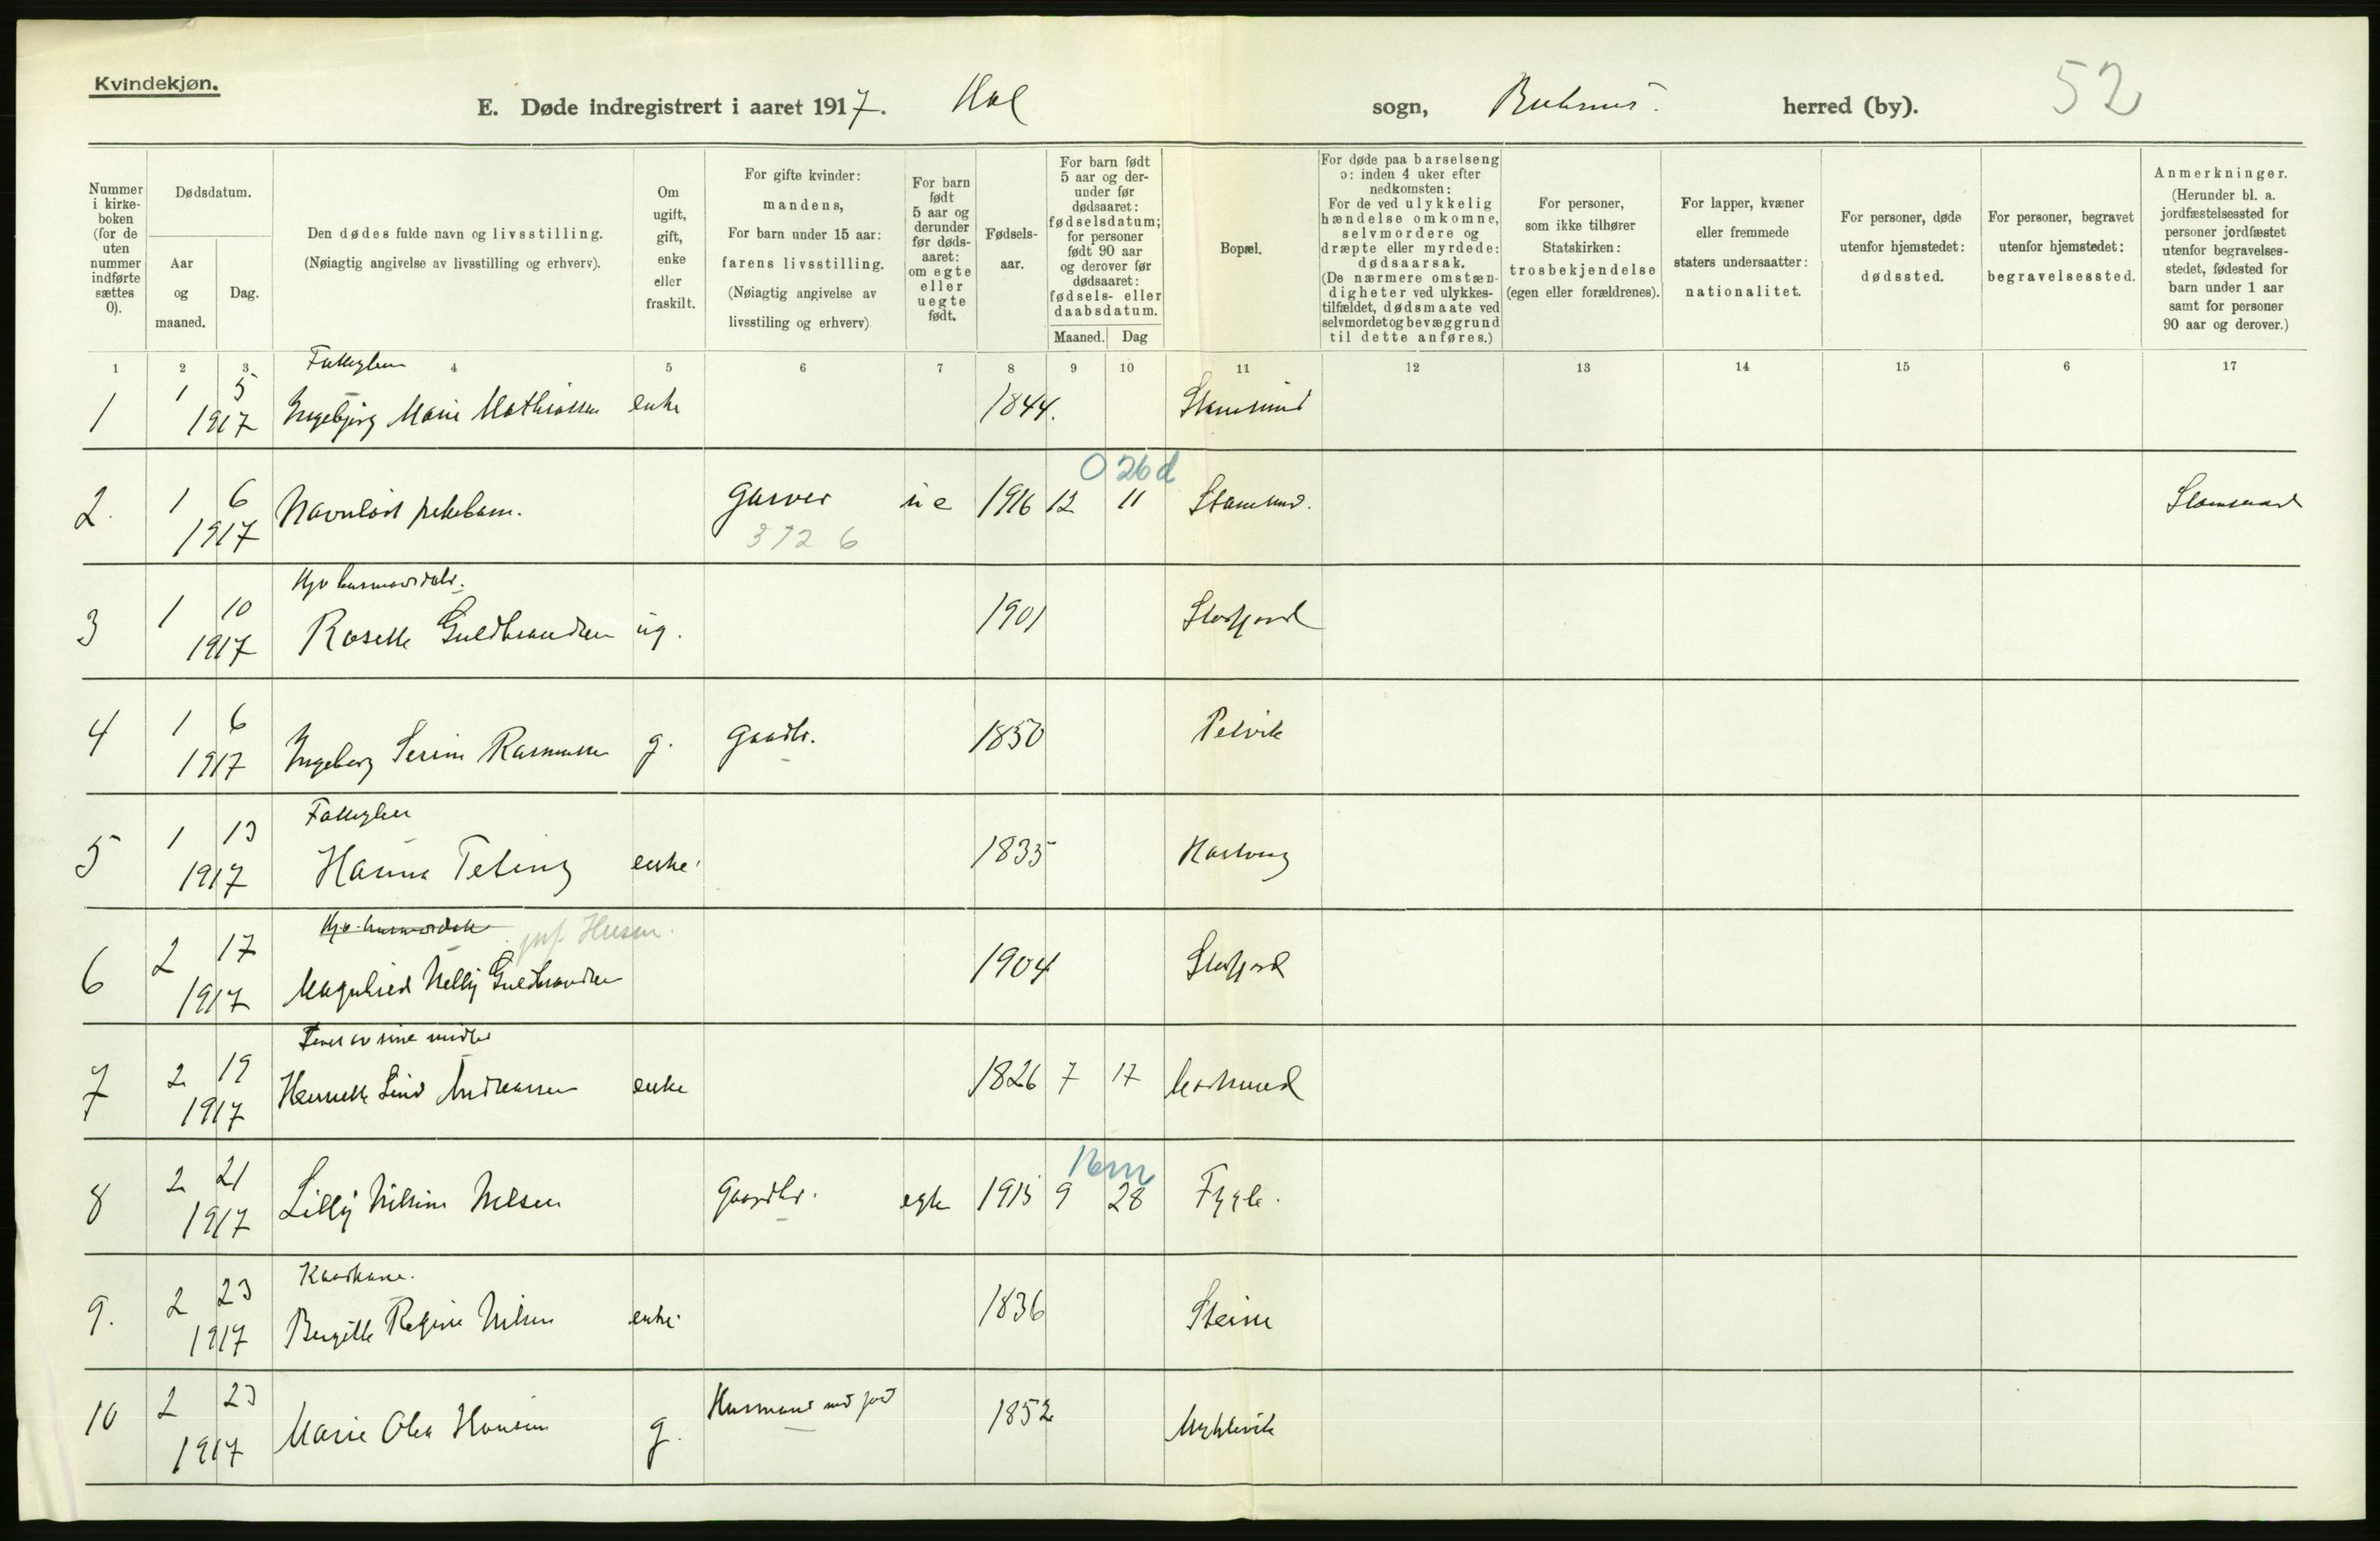 Kvindekjøn.
E. Døde indregistrert i aaret 1917. Hol sogn, Buksnes. herred (by). 52
Nummer i kirke-boken (for de uten nummer indførte sættes 0).
Dødsdatum.
Aar og maaned.
Dag.
Den dødes fulde navn og livsstilling.
(Nøiagtig angivelse av livsstilling og erhverv).
Om ugift, gift, enke eller fraskilt.
For gifte kvinder:
mandens,
For barn under 15 aar:
farens livsstilling.
(Nøiagtig angivelse av
livsstiling og erhverv)
For barn født 5 aar og derunder før døds-aaret: om egte eller uegte født.
Fødsels-aar.
For barn født 5 aar og der-under før dødsaaret: fødselsdatum; for personer født 90 aar og derover før dødsaaret: fødsels- eller daabsdatum.
Maaned. Dag
Bopæl.
For døde paa barselseng
ɔ: inden 4 uker efter
nedkomsten:
For de ved ulykkelig
hændelse omkomne,
selvmordere og
dræpte eller myrdede:
dødsaarsak.
(De nærmere omstæn-
digheter ved ulykkes-
tilfældet, dødsmaate ved
selvmordet og bevæggrund
til dette anføres.)
For personer,
som ikke tilhører
Statskirken:
trosbekjendelse
(egen eller forældrenes).
For lapper, kvæner
eller fremmede
staters undersaatter:
nationalitet.
For personer, døde
utenfor hjemstedet:
dødssted.
For personer, begravet
utenfor hjemstedet:
begravelsessted.
Anmerkninger.
(Herunder bl. a.
jordfæstelsessted for
personer jordfæstet
utenfor begravelses-
stedet, fødested for
barn under 1 aar
samt for personer
90 aar og derover.)
1 2 3 4 5 6 7 8 9 10 11 12 13 14 15 6 17
1 1 5 1917 Ingebjørg Marie Mathiassen enke 1844. Stamsund
0 26d
2. 1 6 1917 Navnløst pikebarn. Garver ue 1916 12 11 Stamsund. Stamsund
3726
3 1 10 1917 Roselle Guldbrandsen ug. 1901 Storfjord
4 1 6 1917 Ingeborg Serine Rasmussen g. Gaardbr. 1850 Petvik
5 1 13 1917 Hanna Teting enke 1835 Hartvang
6 2 17 1917 Nelly Guldbrandsen 1904 Storfjord
Lever av sine midler
7 2 19 1917 Lind Andreassen enke 1826 7 17 Mortsund
16m
8 2 21 1917 Lilly Nilsine Nilsen Gaardbr. egte 1915 9 28 Fygle.
Kaarkone.
9. 2 23 1917 Bergitte Regine Nilsen enke 1836 Steine
10 2 23 1917 Marie Olea Hansen g. Husmand med jord 1852 Myklevik